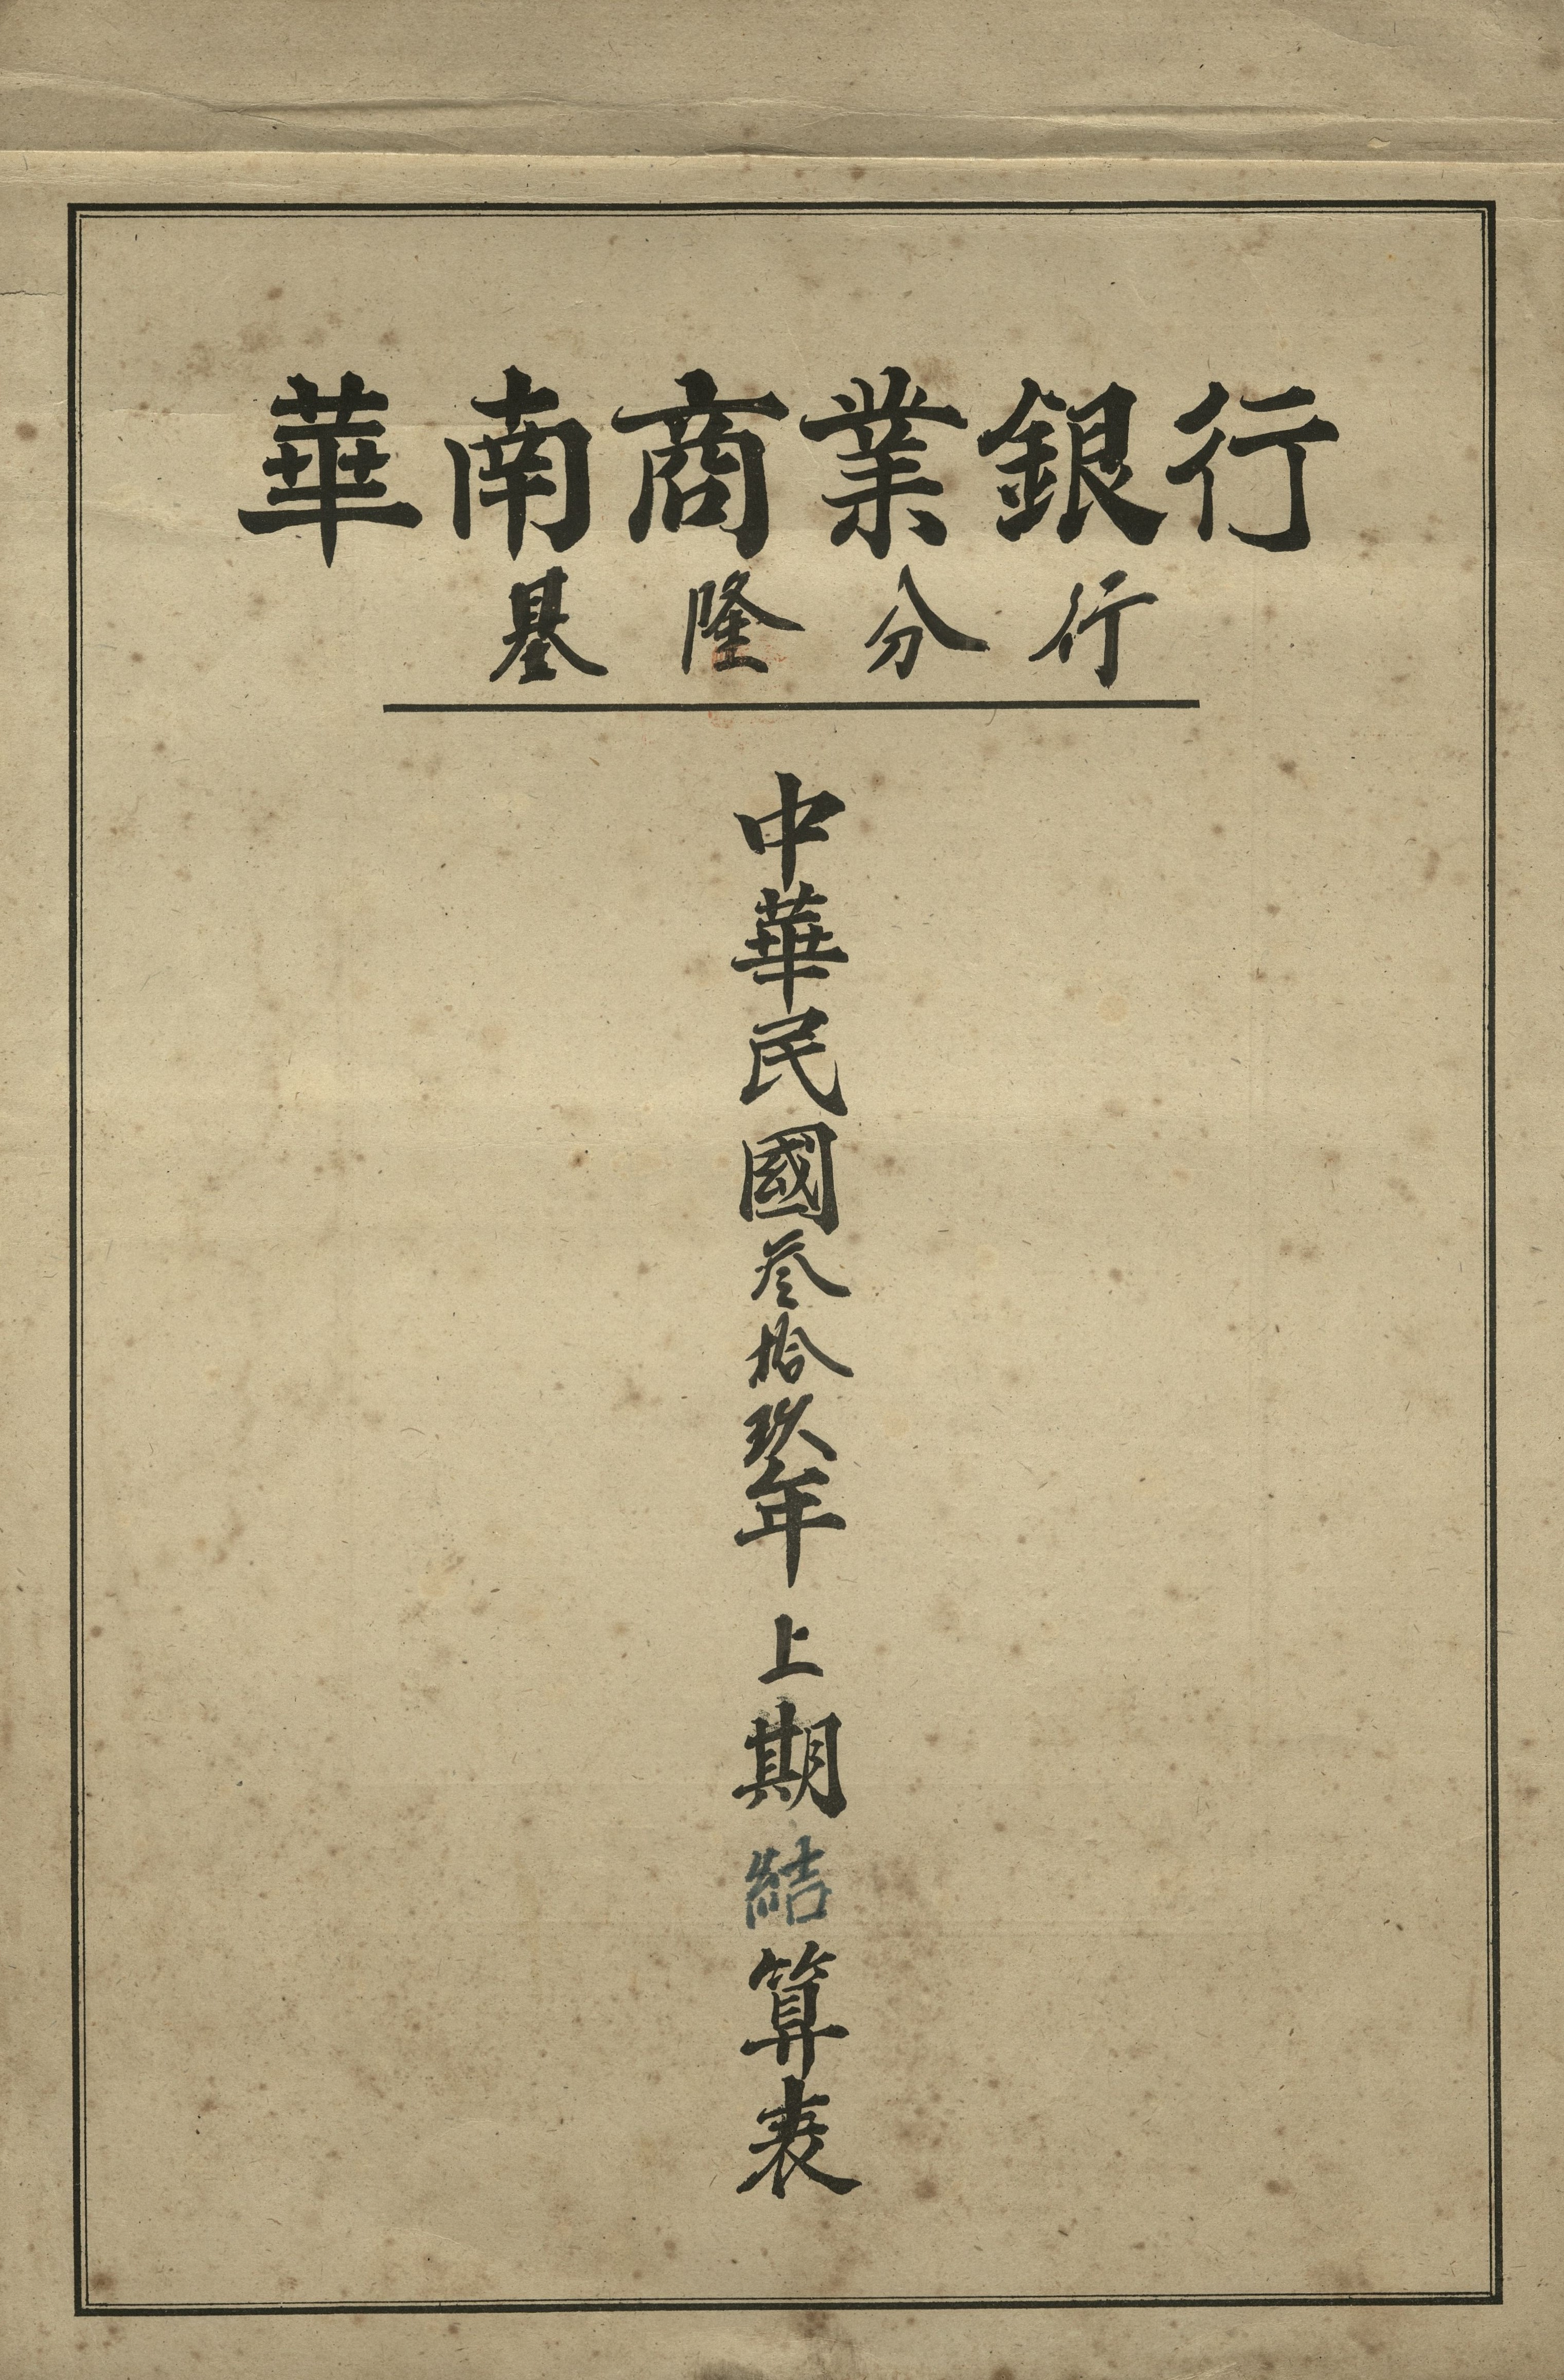 華南商業銀行
基隆分行
中華民國叁拾玖年上期結算表